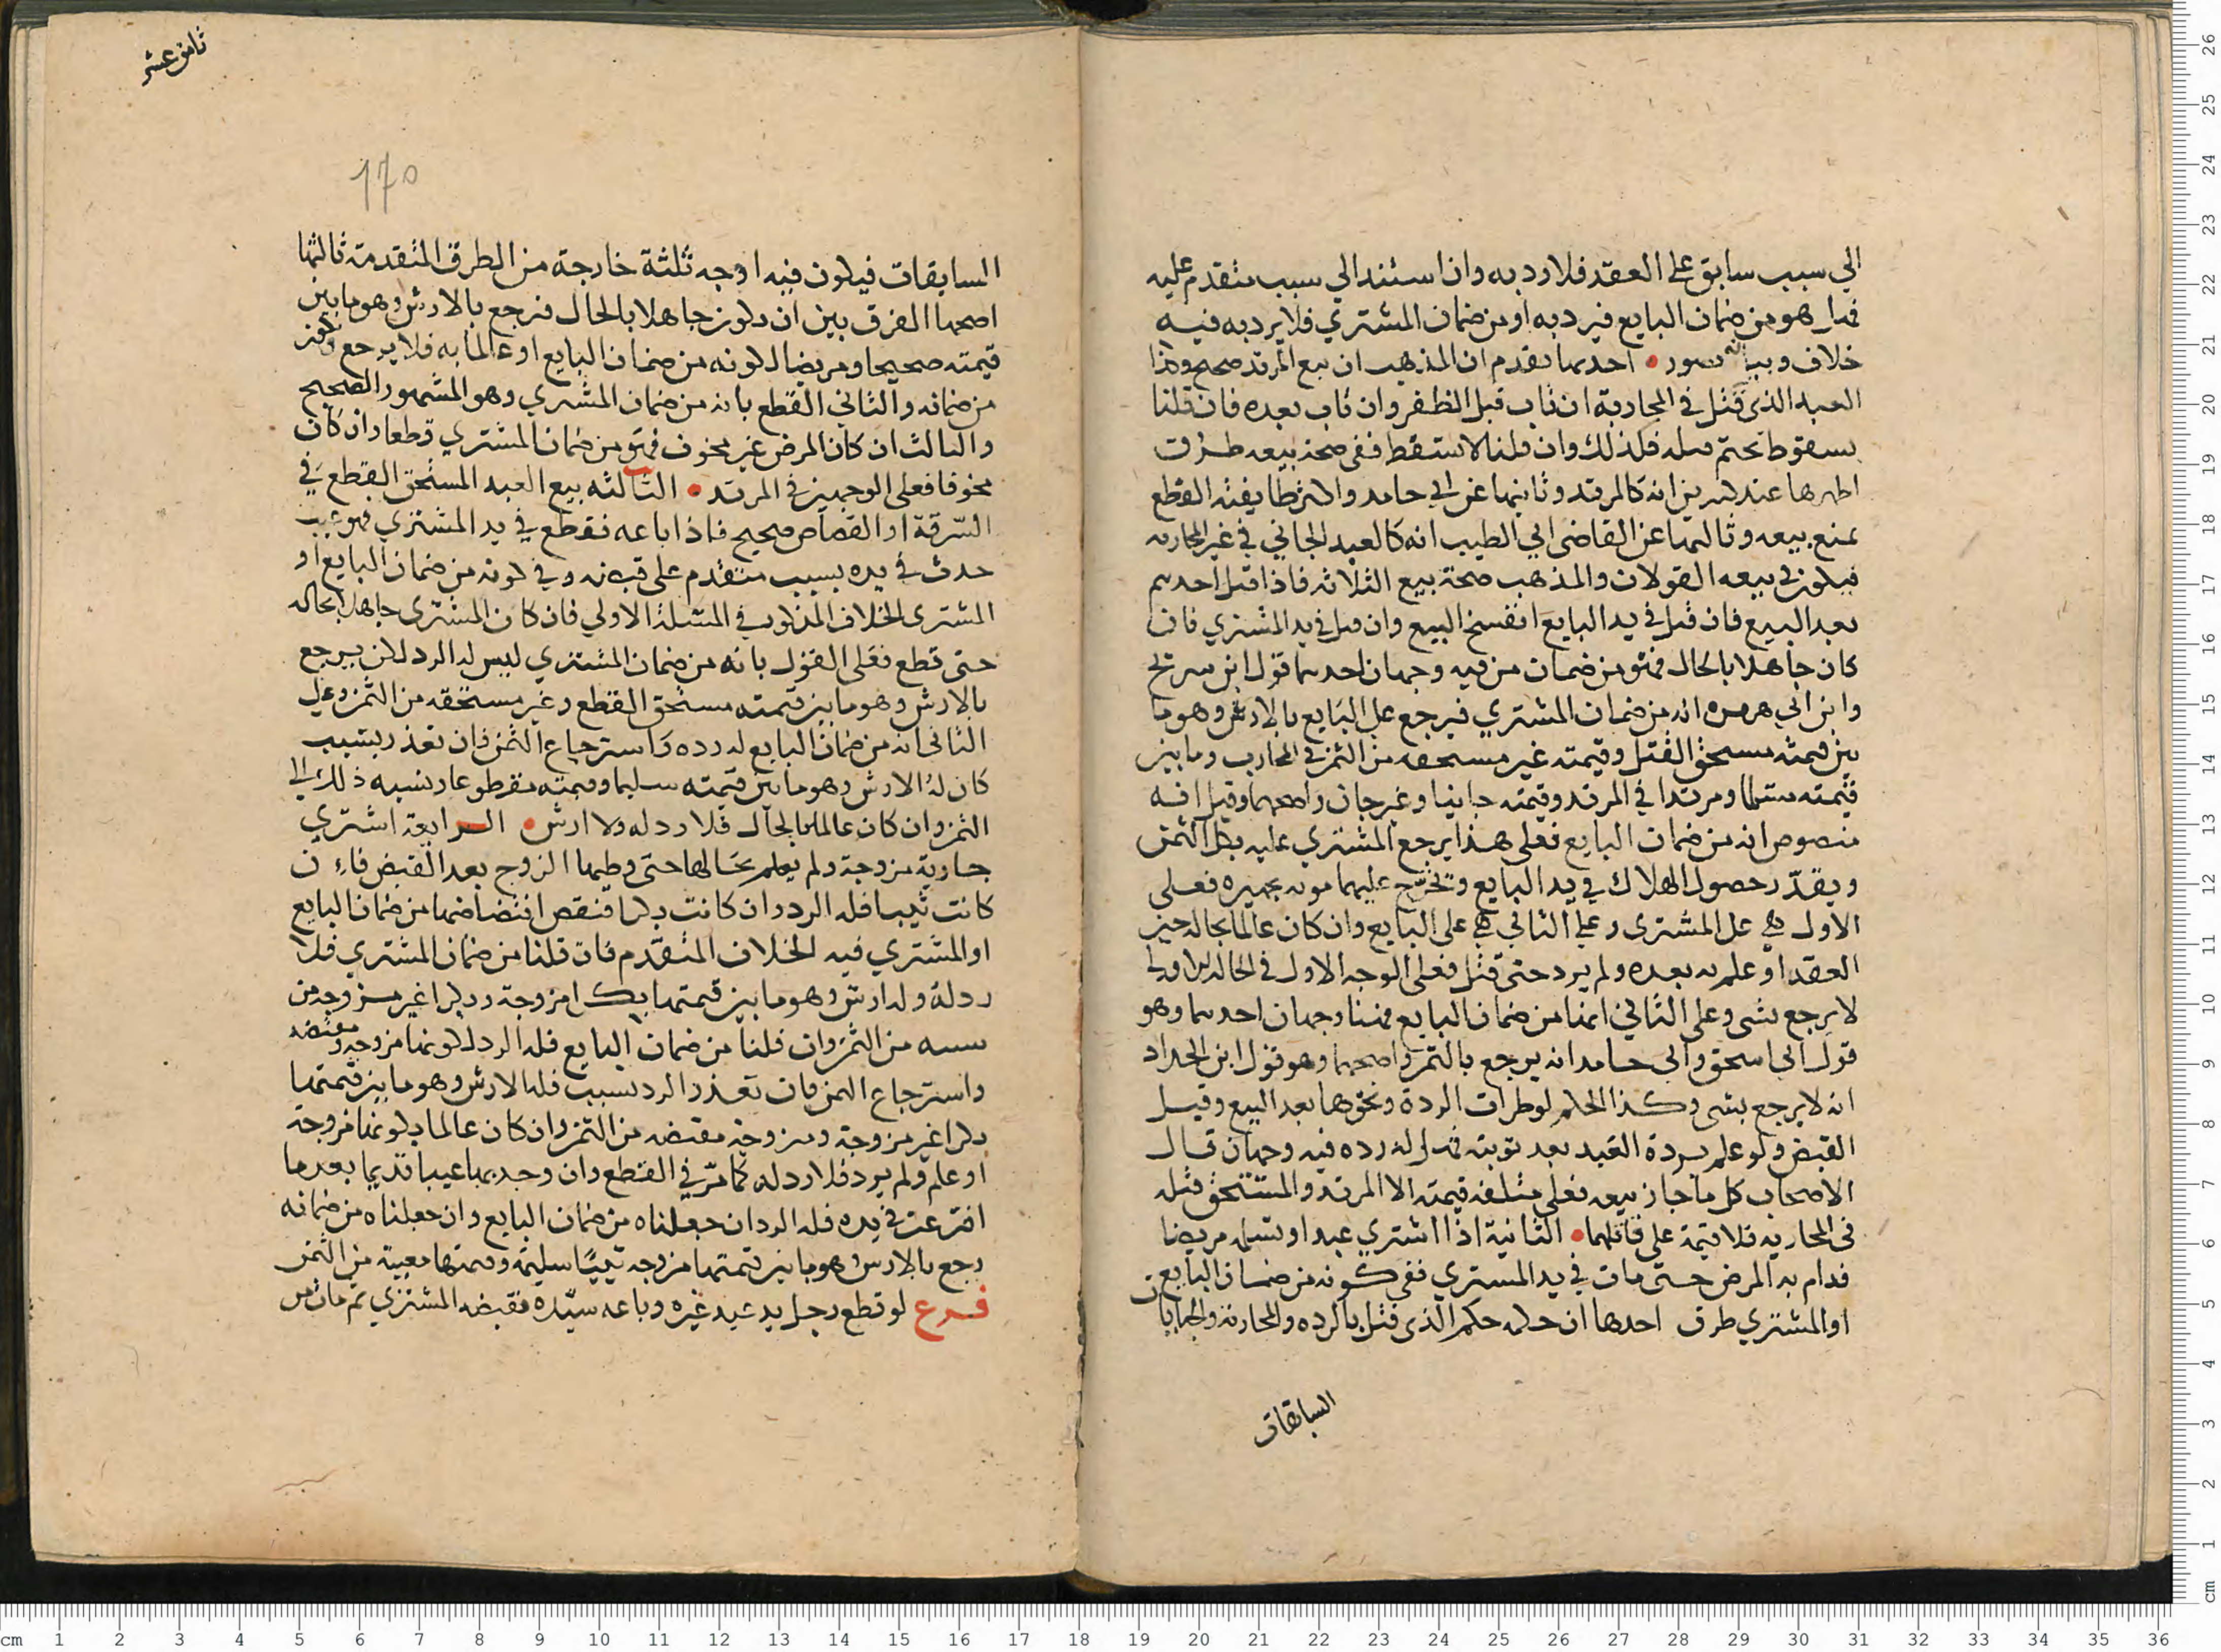 الي سبب سابق على العقد فلا رد به وان استند الي سبب متقدم عليه
فهل هو من ضمان البايع فيرد به او من ضمان المشتري فلا يرد به فيه
خلاف وبيانه بصور احدها تقدم ان المذهب ان بيع المرتد صحيح وكذا
العبد الذي قتل في المحاربة ان تاب قبل الظفر وان تاب بعده فان قلنا
بسقوط تحتم قتله فكذلك وان قلنا لا يسقط ففي صحة بيعه طرق
اظهرها عند كثيرين انه كالمرتد وثانيها عن ابي حامد وطايفة القطع
بمنع بيعه وثالثها عن القاضي ابي الطيب انه كالعبد الجاني في غير المحاربه
فيكون في بيعه القولان والمذهب صحة بيع الثلاثه فاذا قتل احدهم
بعد البيع فان قتل في يد البايع انفسخ البيع وان قتل في يد المشتري فان
كان جاهلا بالحال فهو من ضمان من فيه وجهان احدهما قول ابن سريج
وابن ابي هريره انه من ضمان المشتري فيرجع على البايع بالارش وهو ما
بين قيمته مستحق القتل وقيمته غير مستحقه من الثمن في المحارب وما بين
قيمته مسلما ومرتدا في المرتد وقيمته جانيا وغير جان واصحهما وقيل انه
منصوص انه من ضمان البايع فعلى هذا يرجع المشتري عليه بكل الثمن
ويقدّر حصول الهلاك في يد البايع وتخرّج عليهما مونه تجهيزه فعلى
الاول هي على المشتري وعلى الثاني هي على البايع وان كان عالما بحاله حين
العقد او علم به بعده ولم يرد حتى قتل فعلى الوجه الاول في الحاله الاولى
لا يرجع بشي وعلى الثاني انها من ضمان البايع فهنا وجهان احدهما وهو
قول ابي اسحق وابي حامد انه يرجع بالثمن واصحهما وهو قول ابن الحداد
انه لا يرجع بشي وكذا الحكم لو طرات الردة ونحوها بعد البيع وقبل
القبض ولو علم بردة العبد بعد توبته فهل له رده فيه وجهان قال
الاصحاب كل ما جاز بيعه فعلى متلفه قيمته الا المرتد والمستحق قتله
في المحاربه فلا قيمة على قاتلهما الثانية اذا اشتري عبدا وتسلمه مريضا
فدام به المرض حتى مات في يد المشتري ففي كونه من ضمان البايع
او المشتري طرق احدها ان حكمه حكم الذي قتل بالرده والمحاربة والجنايات
السابقات
ثامن عشر
١٧٥
السابقات فيكون فيه اوجه ثلثة خارجة من الطرق المتقدمة ثالثها
اصحها الفرق بين ان يكون جاهلا بالحال فيرجع بالارش وهو ما بين
قيمته صحيحا ومريضا لكونه من ضمان البايع او عالما به فلا يرجع
من ضمانه والثاني القطع بانه من ضمان المشتري وهو المشهور الصحيح
والثالث ان كان المرض غير مخوف فهو من ضمان المشتري قطعا وان كان
مخوفا فعلى الوجهين في المرتد الثالثه بيع العبد المستحق القطع في
السّرقة او القصاص صحيح فاذا باعه فقطع في يد المشتري فهو عيب
حدث في يده بسبب متقدم على قبضه وفي كونه من ضمان البايع او
المشتري الخلاف المذكور في المسئلة الاولي فان كان المشتري جاهلا بحاله
حتى قطع فعلى القول بانه من ضمان المشتري ليس له الرد لكن يرجع
بالارش وهو ما بين قيمته مستحق القطع وغير مستحقه من الثمن وعلى
الثاني انه من ضمان البايع له رده واسترجاع الثمن فان تعذر بسبب
كان له الارش وهو ما بين قيمته سليما وقيمته مقطوعا بنسبه ذلك الى
الثمن وان كان عالما بالحال فلا رد له ولا ارش الرابعة اشتري
جارية مزوجة ولم يعلم بحالها حتى وطيها الزوج بعد القبض فان
كانت ثيبا فله الرد وان كانت بكرا فنقص افتضاضها من ضمان البايع
او المشتري فيه الخلاف المتقدم فان قلنا من ضمان المشتري فلا
رد له وله ارش وهو ما بين قيمتها بكرا مزوجة وبكرا غير مزوجة من
من الثمن وان قلنا من ضمان البايع فله الرد لكونها مزوجه
واسترجاع الثمن فان تعذر الرد بسبب فله الارش وهو ما بين قيمتها
بكرا غير مزوجة ومزوجة مقتضه من الثمن وان كان عالما بكونها مزوجة
او علم ولم يرد فلا رد له كما مرّ في القطع وان وجد بها عيبا قديما بعد ما
افترعت في يده فله الرد ان جعلناه من ضمان البايع وان جعلناه من ضمانه
رجع بالارش وهو ما بين قيمتها مزوجه ثيّبا سليمة وقيمتها معيبة من الثمن
فرع لو قطع رجل يد عبد غيره وباعه سيّده فقبضه المشتري ثم مات من